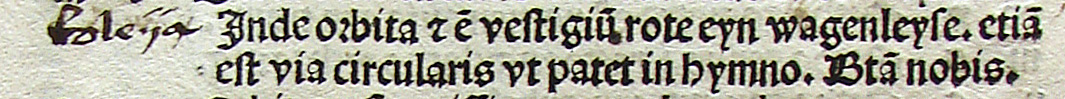 Inde orbita ⁊ ē vestigiū rote eyn wagenleyse. etiā
est via circularis vt patet in hymno. Btā nobis.